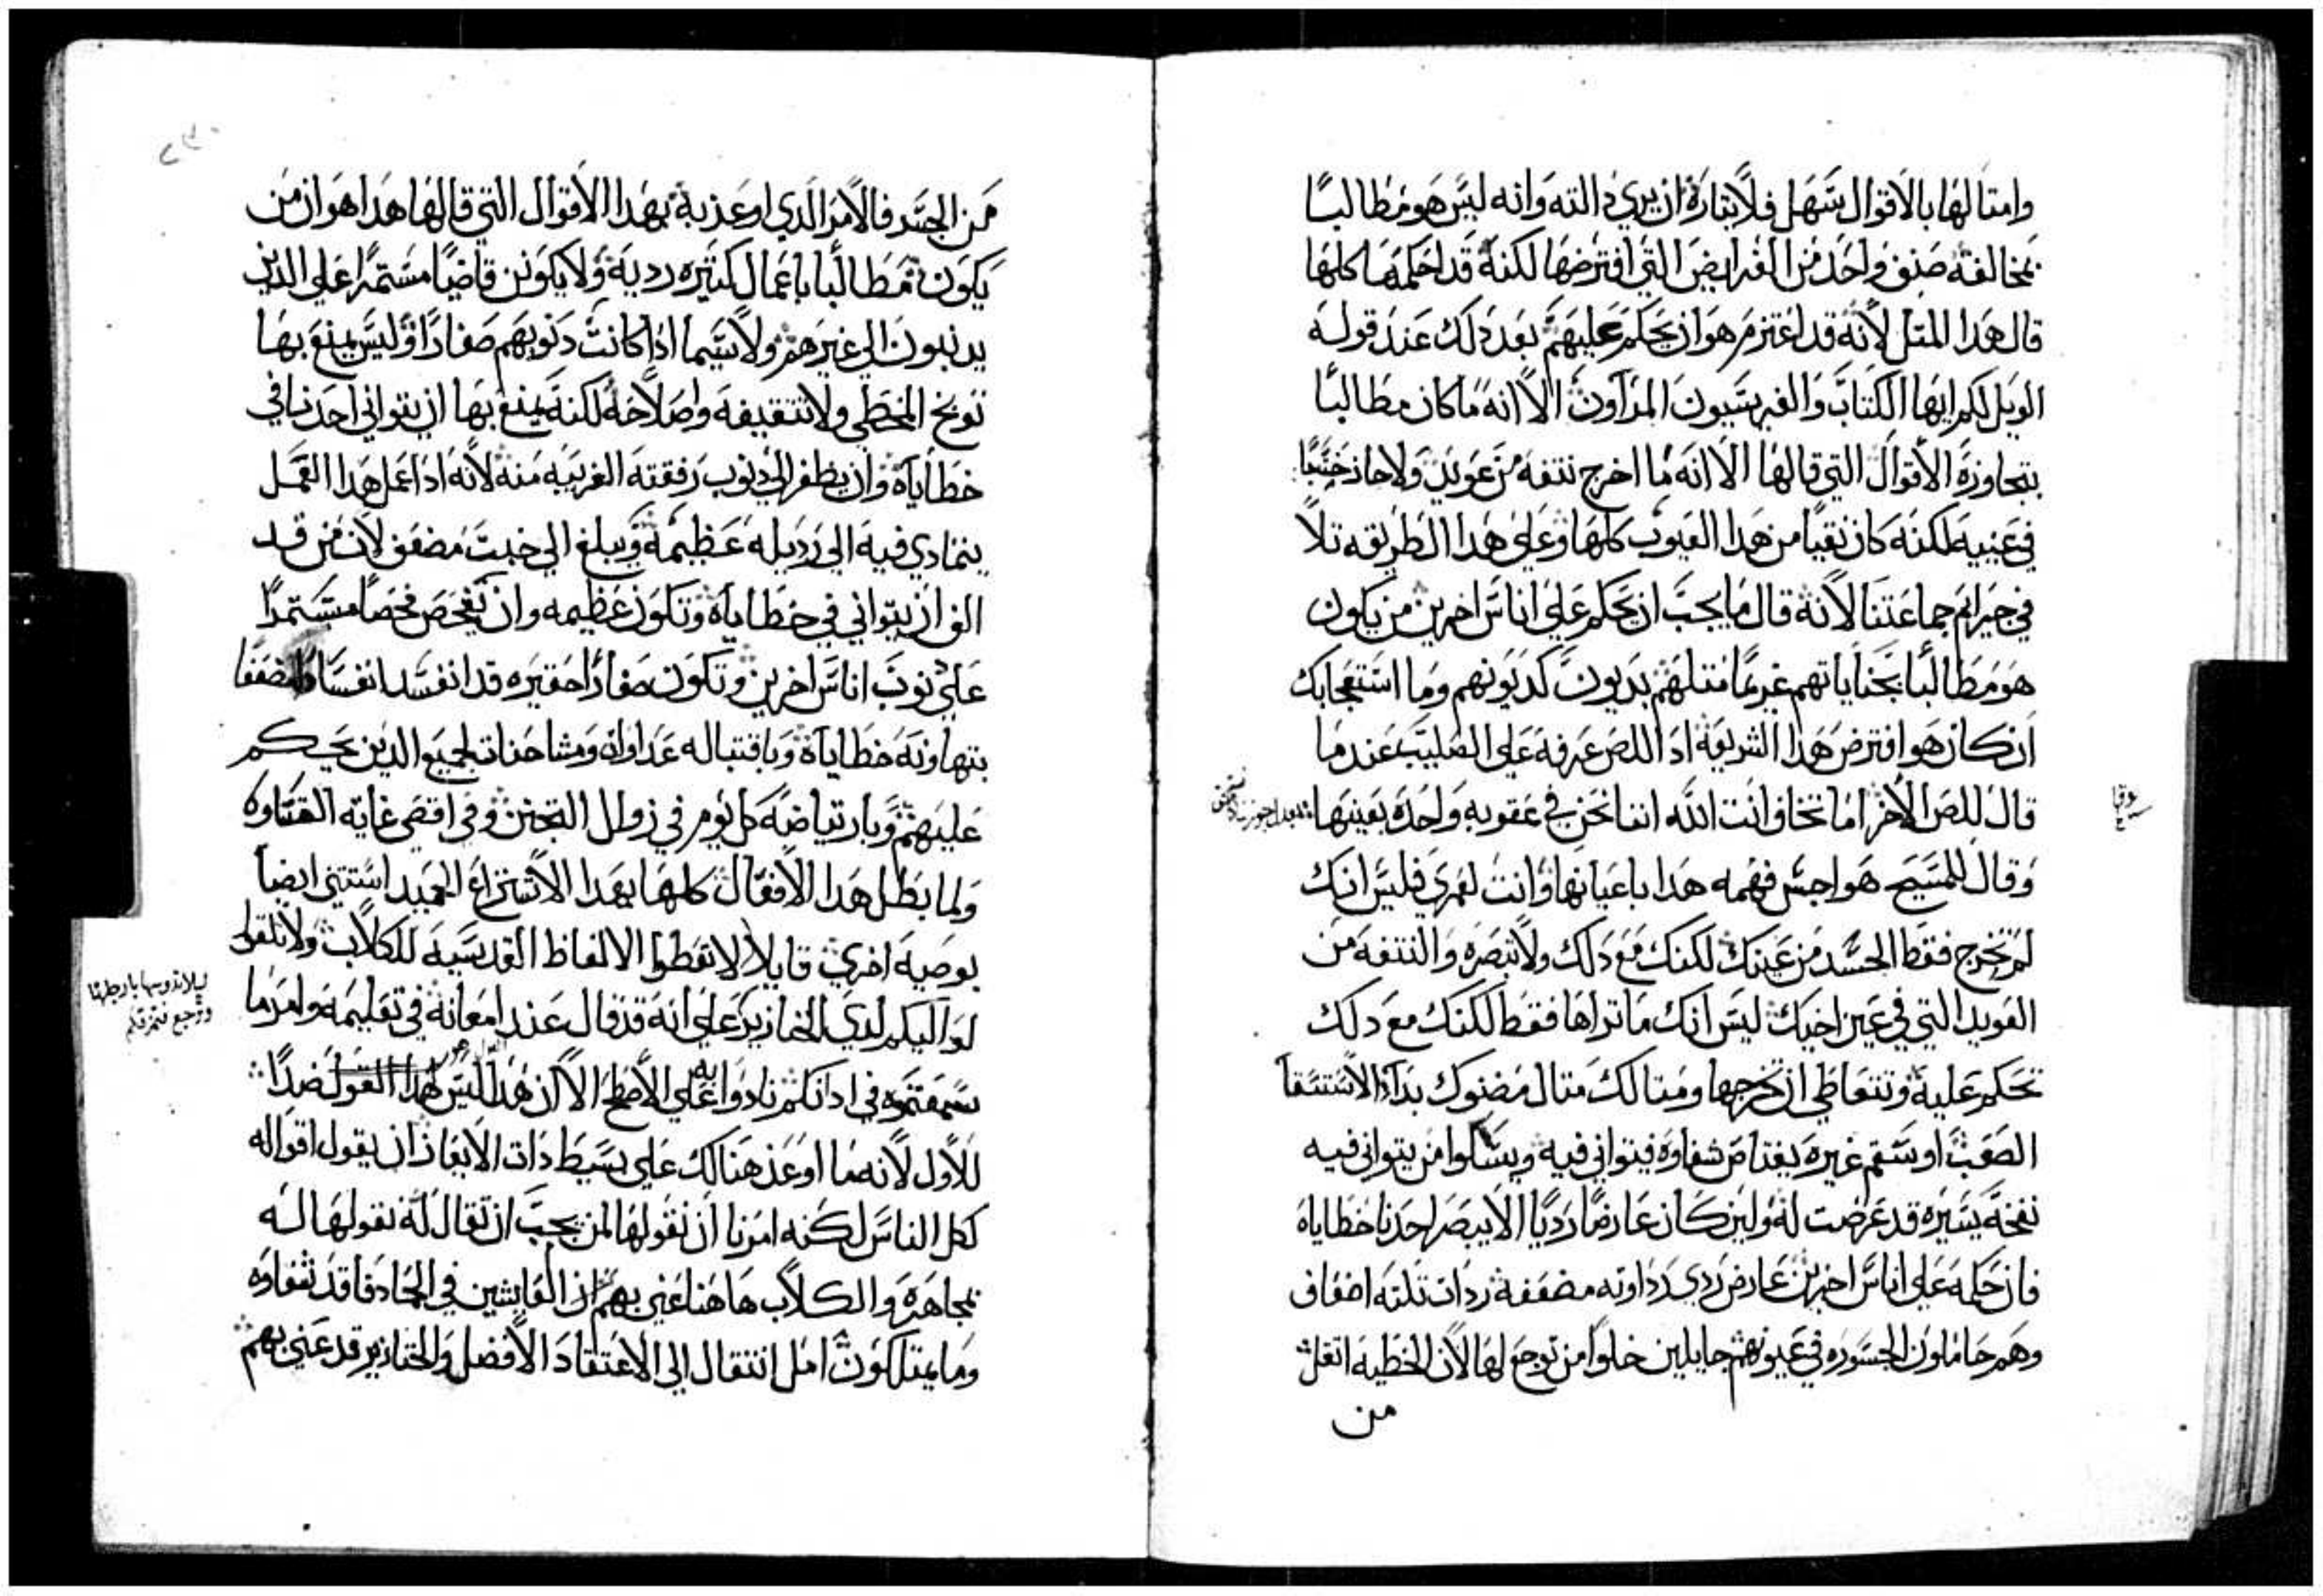 وامتالها بالاقوال سهل فلايتارة ان يري دالته وانه ليس هو مطالبًا
بمخالفته صنف واحد من الفرايض التي افترضها لكنه قد احكمها كلها
قال هدا المتل لانه قد اعتزم هو ان يحكم عليهم بعد دلك عند قوله
الويل لكم ايها الكتاب والفريسيون المراوون الا انه ما كان مطالبًا
بتجاوزه الاقوال التي قالها الا انه ما اخرج نتفه من عويد ولا حاز خشبًا
في عينيه لكنه كان نقيًا من هدا العيوب كلها وعلي هدا الطريقه تلا
في جرايم جماعتنا لانه قال ما يجب ان يحكم علي اناس اخرين من يكون
هو مطالبًا بجناياتهم غريمًا متلهم بديون كديونهم وما استعجابك
ان كان هو افترض هدا الشريعة اد اللص عرفه علي الصليب عند ما
قال للص الاخر اما تخاف انت الله اننا نحن في عقوبه واحده بعينها
لوقا
وقال للمسيح هواجس فهمه هدا باعيانها وانت لعمري فليس انك
لم تخرج فقط الجسد من عينك لكنك مع دلك ولا تبصره والنتفه من
العويد التي في عين اخيك ليس انك ما تراها فقط لكنك مع دلك
تحكم عليه وتتعاطي ان تخرجها ومتالك متال مضنوك بداء الاستسقا
الصعب او سقم غيره يعتاص شفاوه فيتواني فيه ويشكوا من يتواني فيه
نفخه يسيره قد عرضت له ولين كان عارضًا رديًا الا يبصر احدنا خطاياه
فان حكمه علي اناس اخرين عارض ردي رداوته مضعفه ردات تلته اضعاف
وهم حاملون الجسوره في عيونهم جايلين خلوا من توجع لها لان الخطيه اتقل
من
من الجسر فالامر الدي اوعز به بهدا الاقوال التي قالها هدا هو ان من
يكون مطالبًا باعمال كتيره رديه ولا يكونن قاضيًا مستمرًا علي الدين
يدنبون الي غيرهم ولا سيما ادا كانت دنوبهم صغارًا وليس يمنع بها
توبخ المخطي ولا تتقيفه واصلاحه لكنه يمنع بها ان يتواني احدنا في
خطاياه وان يطفر الي دنوب رفقته الغريبه منه لانه ادا عمل هدا العمل
يتمادي فيه الي رديله عظيمه ويبلغ الي خبت مضعف لان من قد
الف ان يتواني في خطاياه وتكون عظيمه وان يفحص فحصًا مستمدًا
علي نوب اناس اخرين وتكون صغارًا حقيره قد انفسد انفسادًا مضعفا
بتهاونه خطاياه وباقتباله عداوات ومشاحنات لجميع الدين يحكم
عليهم وبارتياضه كل يوم في زوال التحنن وفي اقصي غايه القساوه
ولما بطل هدا الافعال كلها بهدا الاشتراع الحميد استتني ايضا
بوصيه اخري قايلا لا تعطوا الالفاظ القدسيه للكلاب ولا تلقوا
ليلا تدوسها بارجلها
وترجع فتمزقكم
لواليكم لدي الخنازير علي انه قد قال عند امعانه في تعليمه وامر ما
سمعتموه في ادانكم نادوا به علي الاسطح الا ان هدا ليس هدا القول ضدًا
للاول لانه ما اوعز هنالك علي بسيط دات الايعاز ان يقول اقواله
لكل الناس لكنه امرنا ان نقولها لمن يجب ان تقال له نقولها له
بمجاهره والكلاب هاهنا عني بهم ان العايشين في الحاد فاقد شفاوه
وما يمتلكون امل انتقال الي الاعتقاد الافضل والخنازير قد عني بهم